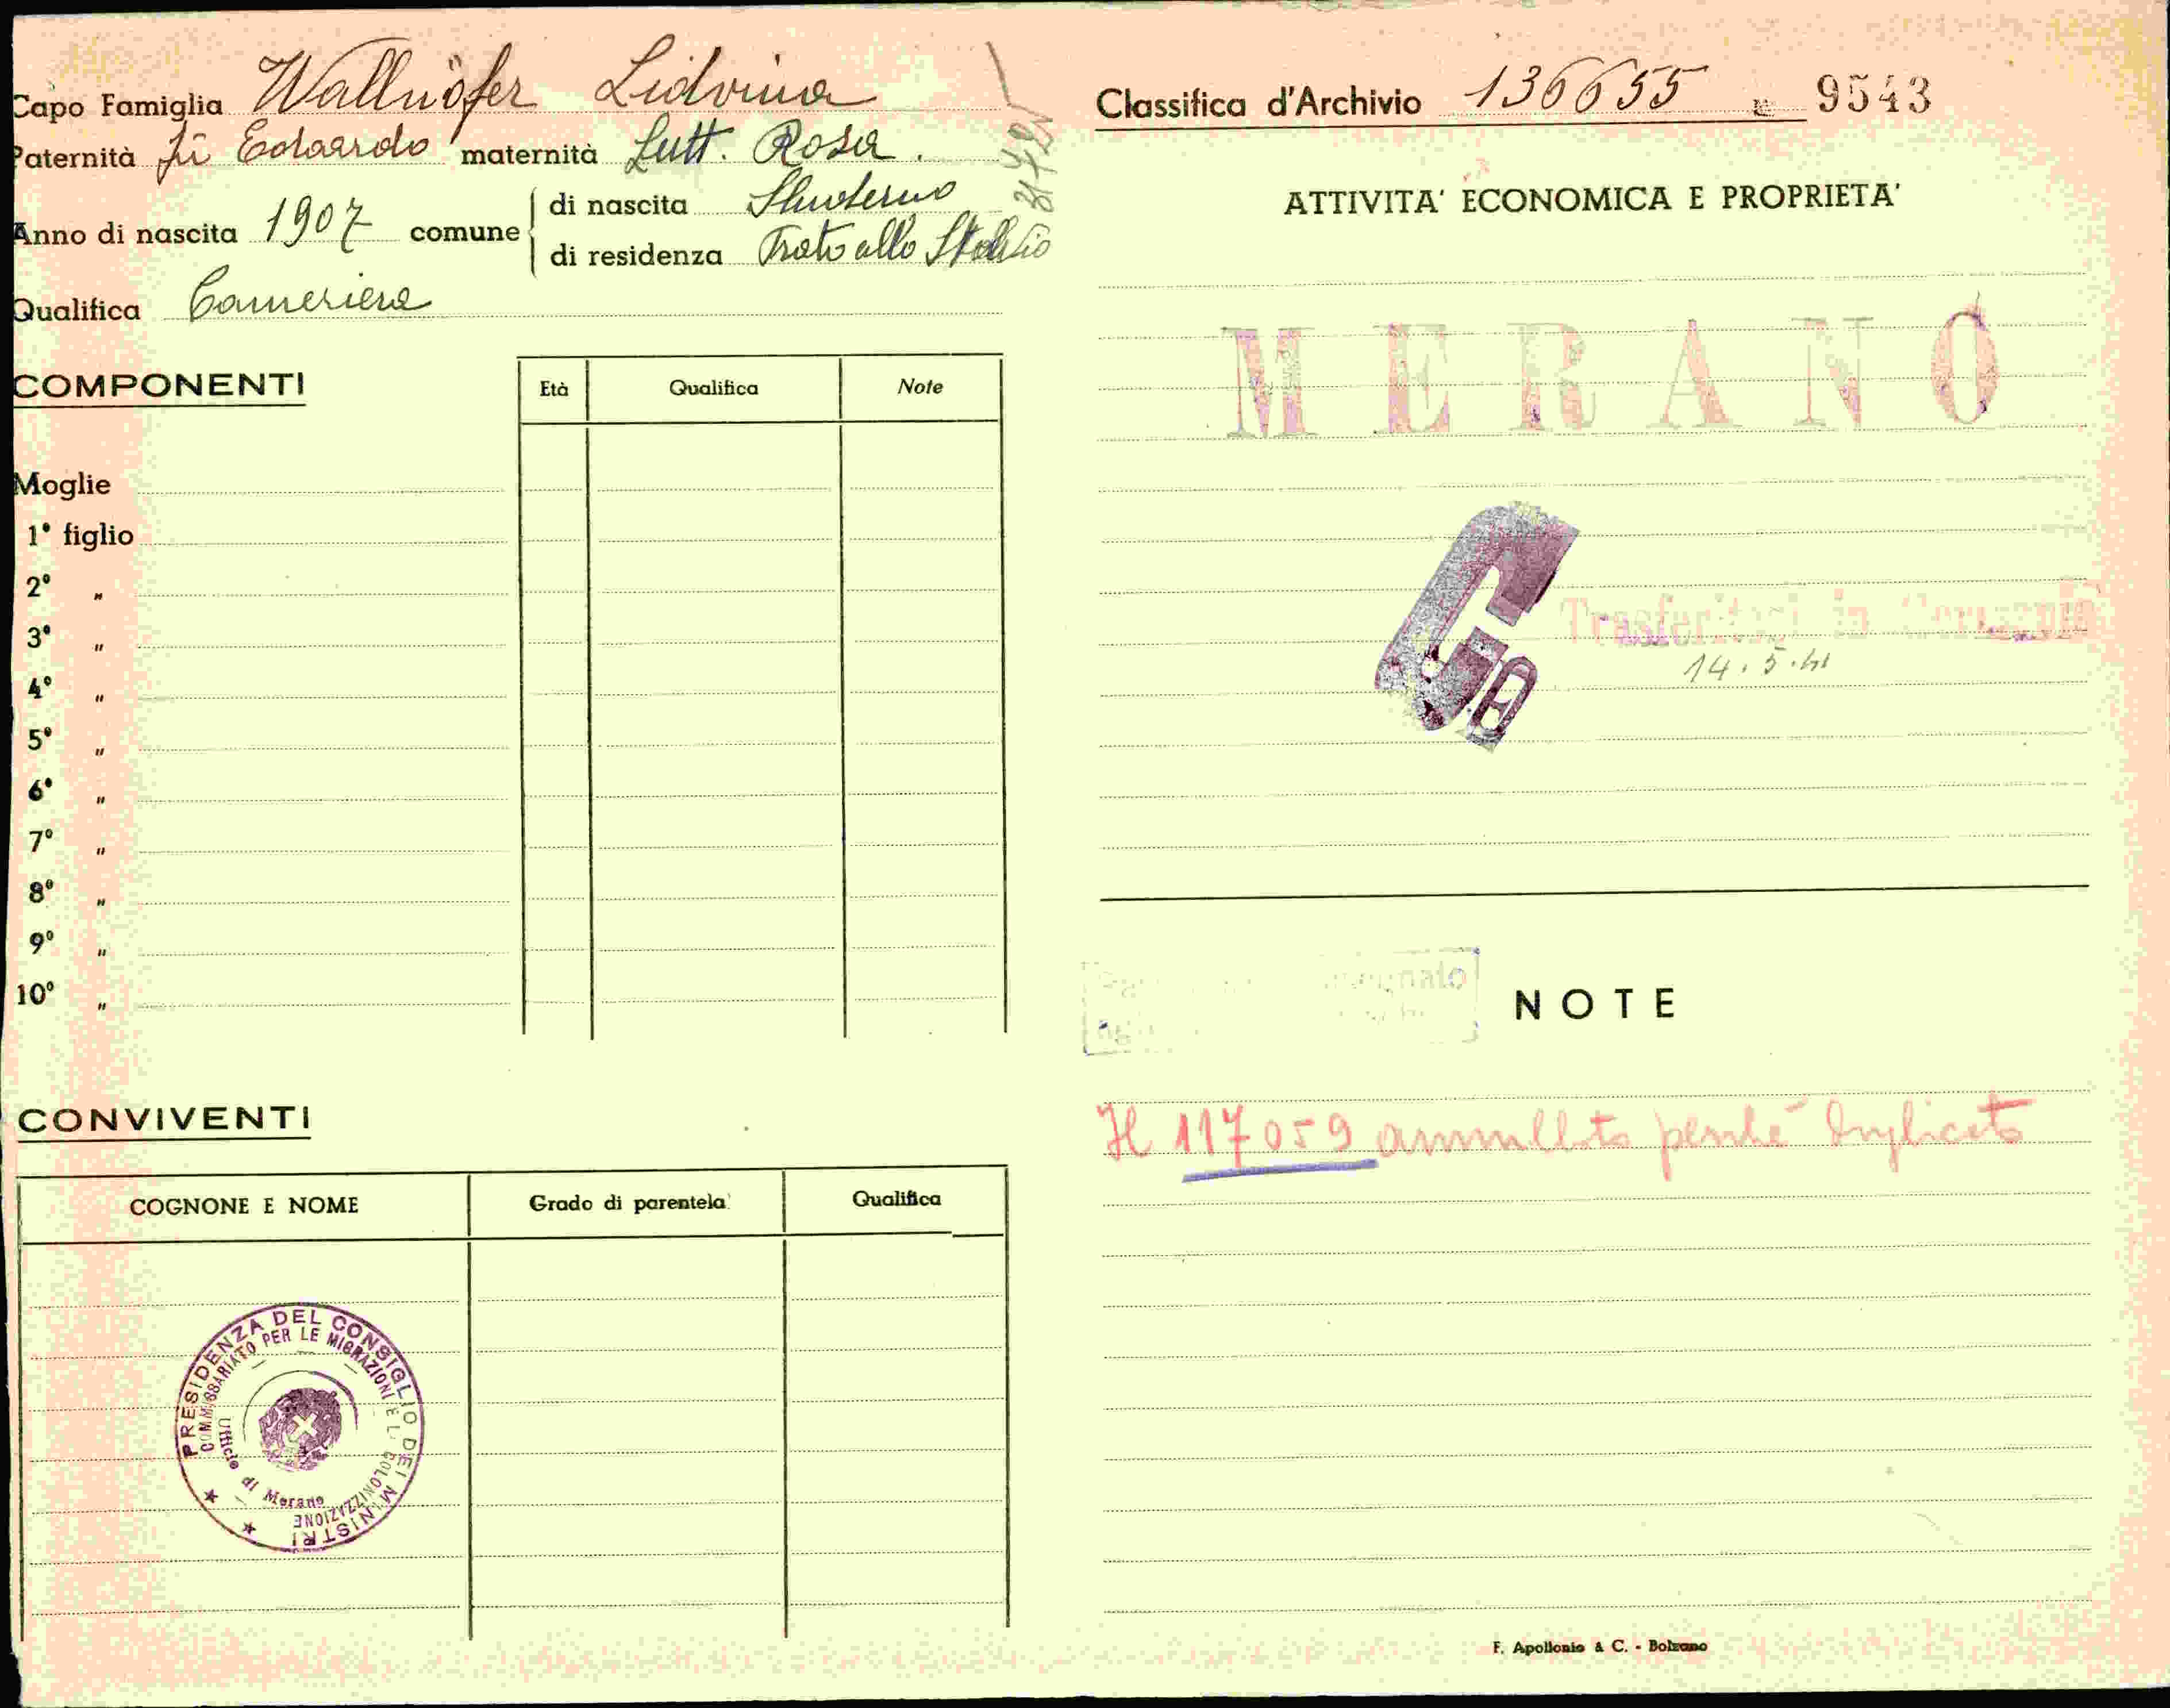 Capo Famiglia Wallnöfer Lidvina
Paternità fu Edoardo maternità Lutt. Rosa.
Anno di nascita 1907 comune
di nascita Sluderno
di residenza Prato allo Stelvio
Qualifica Cameriera
COMPONENTI
Età Qualifica Note
Moglie
1° figlio
2° "
3° "
4° "
5° "
6° "
7° "
8° "
9° "
10° "
CONVIVENTI
COGNONE E NOME Grado di parentela Qualifica
PRESIDENZA DEL CONSIGLIO DEI MINISTRI
COMMISSARIATO PER LE MIGRAZIONI E L' COLONIZZAZIONE
Ufficio di Merano
Classifica d'Archivio 136655 9543
ATTIVITA' ECONOMICA E PROPRIETA'
MERANO
G
Trasferitosi in Germania
14.5.41
NOTE
Il 117059 annullato perché duplicato
F. Apollonio & C. - Bolzano